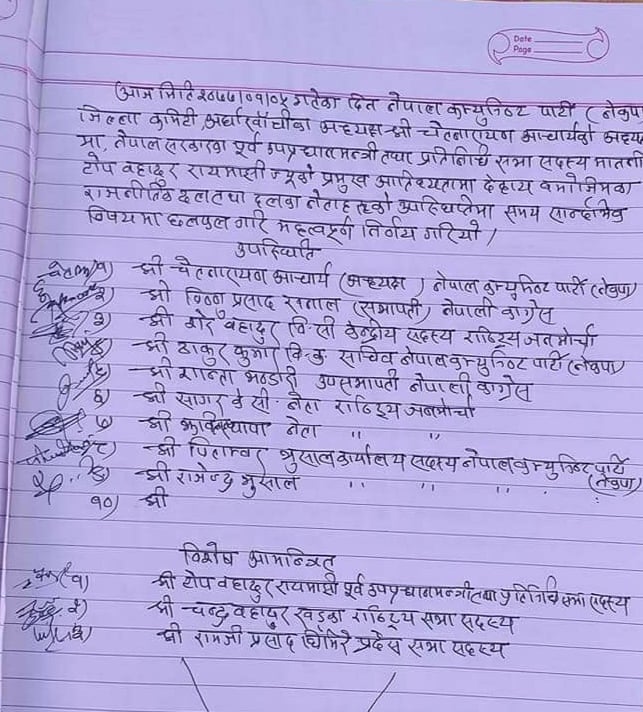 Date
Page
आज मिति २०७७/०१/०५ गतेका दिन नेपाल कम्युनिष्ट पार्टी (नेकपा)
जिल्ला कमिटी अर्घाखाँचीका अध्यक्ष श्री चेतनारायण आचार्यको अध्यक्ष
मा, नेपाल सरकारका पूर्व उपप्रधानमन्त्री तथा प्रतिनिधि सभा सदस्य माननी
टोप बहादुर रायमाझी ज्यूको प्रमुख आतिथ्यतामा देहाय बमोजिमका
राजनीतिक दल तथा दलका नेताहरुको उपस्थितिमा समय सान्दर्भिक
विषयमा छलफल गरि महत्वपूर्ण निर्णय गरियो ।
उपस्थिति
१) श्री चेतनारायण आचार्य (अध्यक्ष) नेपाल कम्युनिष्ट पार्टी (नेकपा)
२) श्री विष्णु प्रसाद खनाल (सभापती) नेपाली काग्रेस
३) श्री वोर बहादुर वि.सी केन्द्रीय सदस्य राष्ट्रिय जनमोर्चा
४) श्री ठाकुर कुमार वि.क सचिव नेपाल कम्युनिष्ट पार्टी (नेकपा)
५) श्री शान्ता भण्डारी उपसभापती नेपाली काग्रेस
६) श्री सागर के सी. नेता राष्ट्रिय जनमोर्चा
७) श्री थापा नेता " "
८) श्री पिताम्वर भुसाल कार्यालय सदस्य नेपाल कम्युनिष्ट पार्टि
(नेकपा)
९) श्री रामेन्द्र भुसाल " " "
१०) श्री
विशेष आमन्त्रित
१) श्री टोप बहादुर रायमाझी पूर्व उपप्रधानमन्त्री तथा प्रतिनिधि सभा सदस्य
२) श्री चन्द्र बहादुर खड्का राष्ट्रिय सभा सदस्य
३) श्री रामजी प्रसाद घिमिरे प्रदेस सभा सदस्य